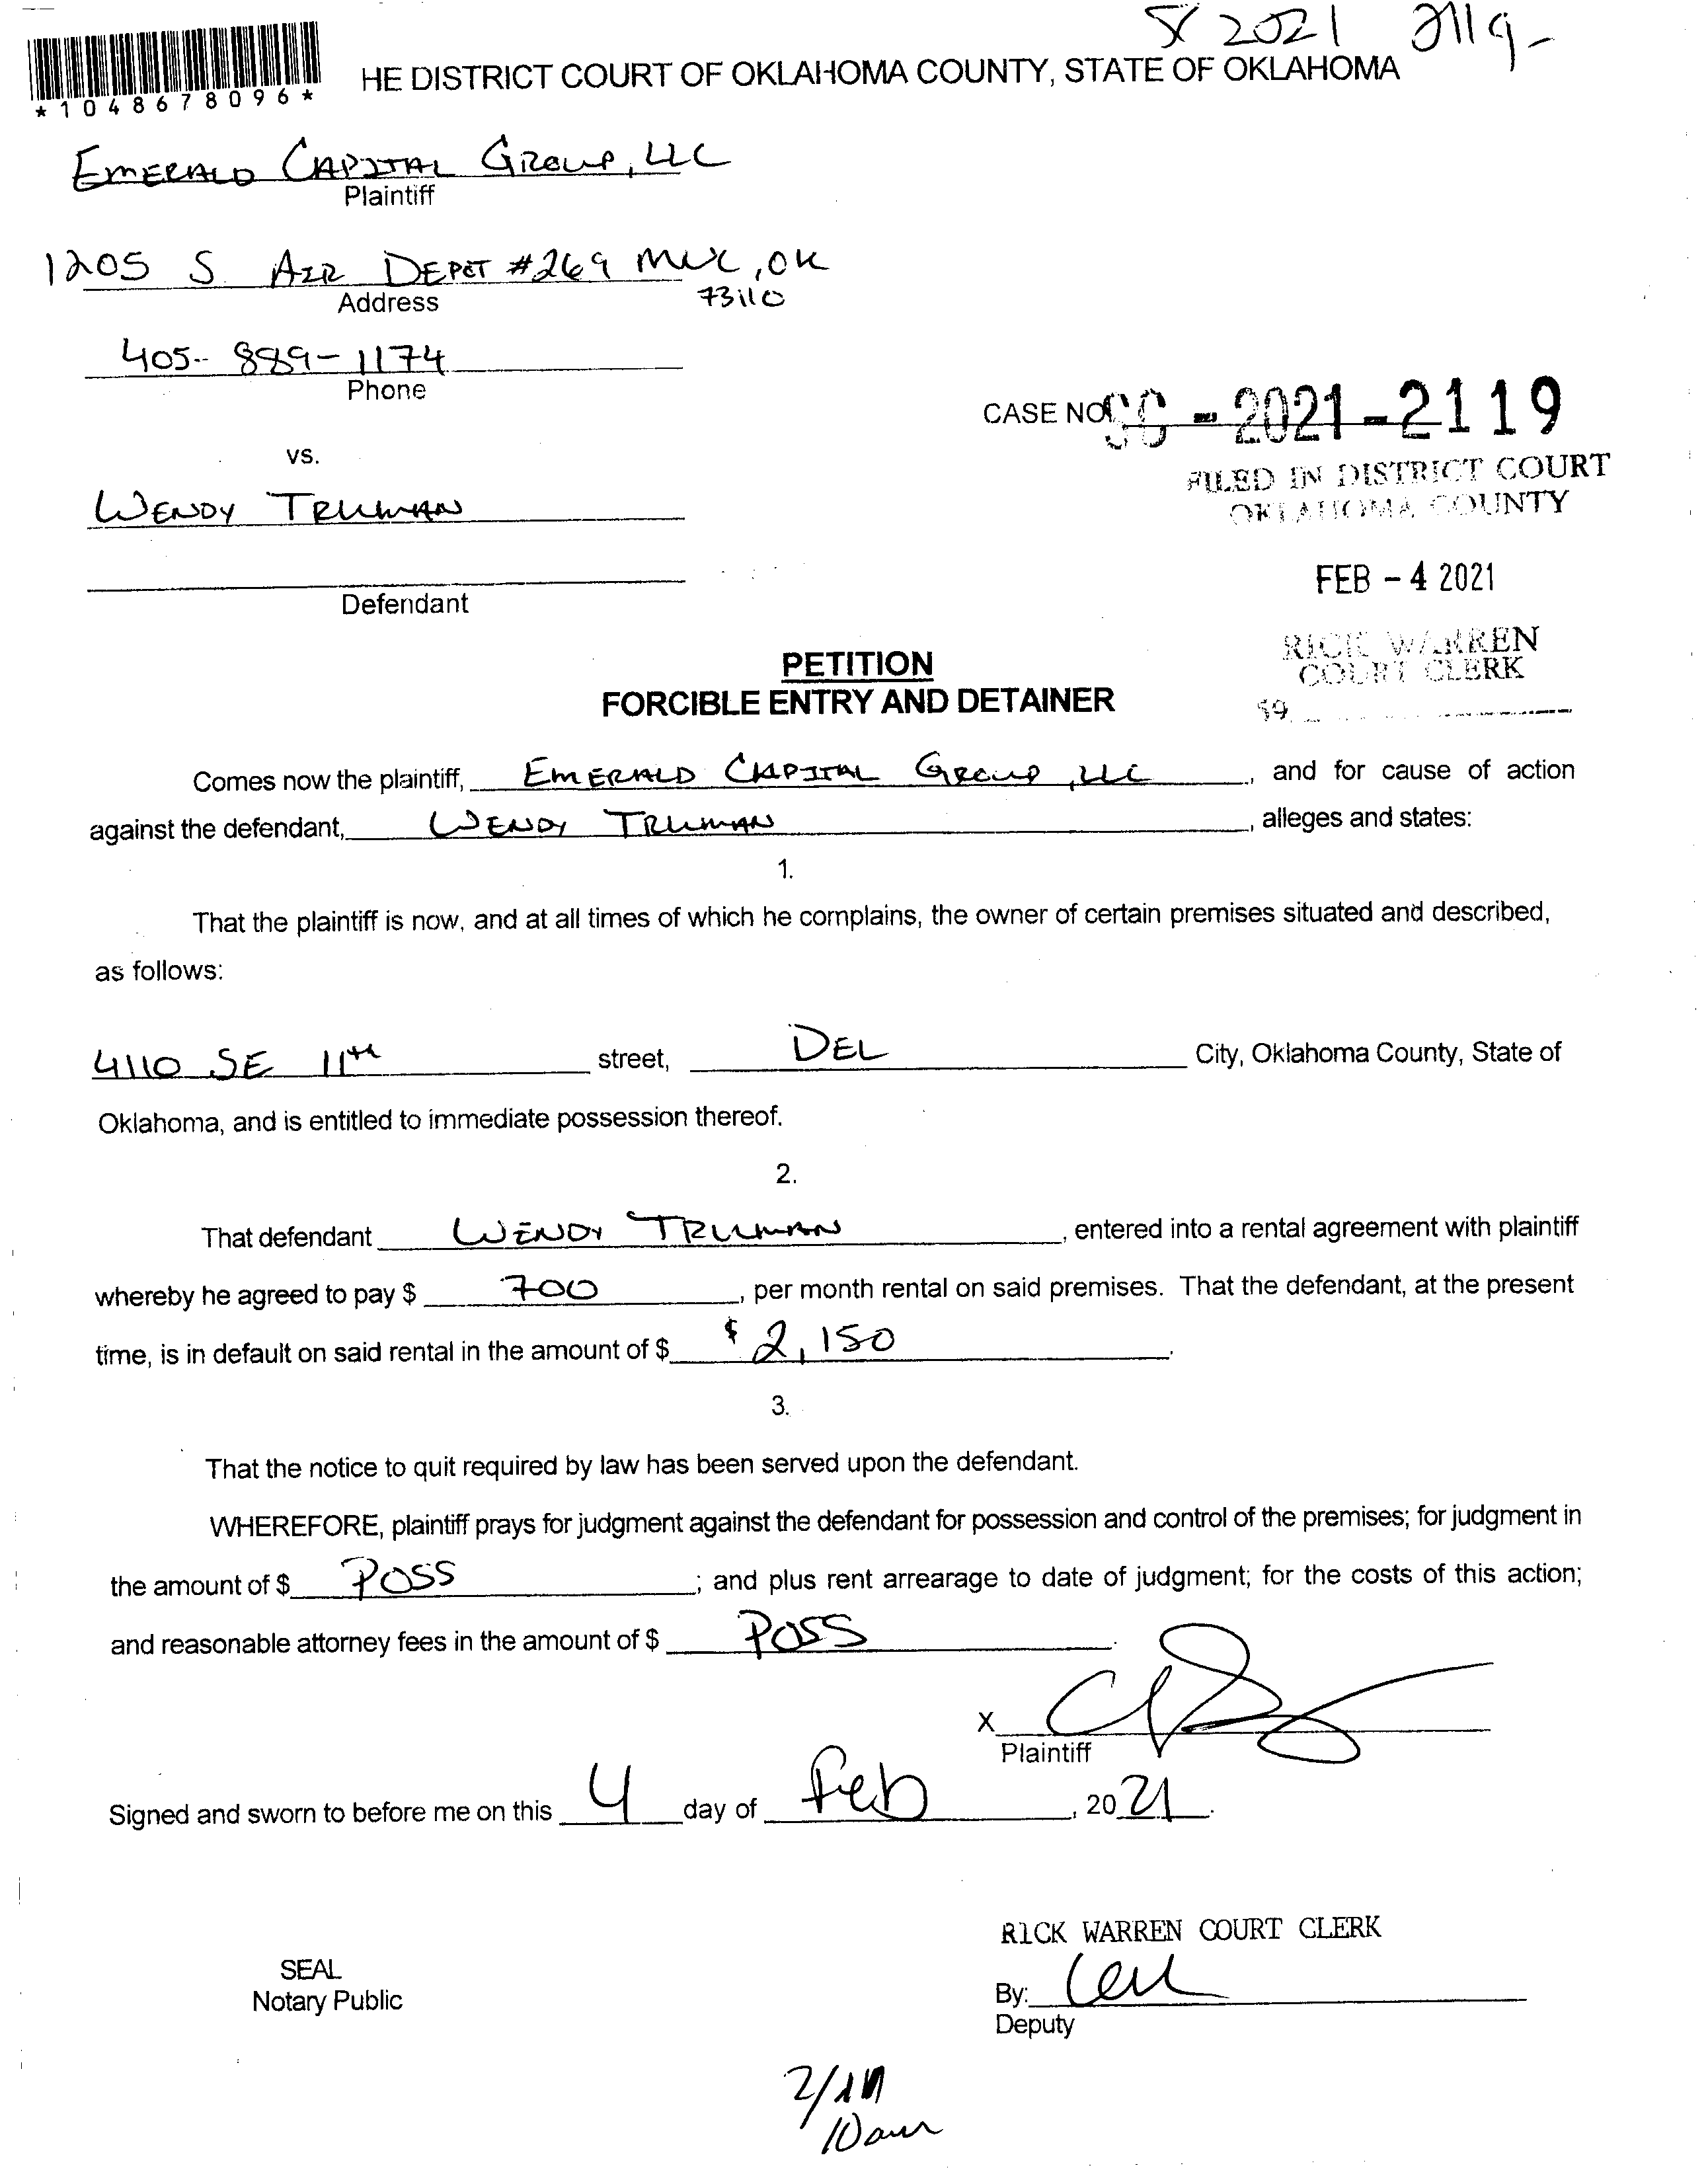 SC 2021 2119-
*1048678096*
HE DISTRICT COURT OF OKLAHOMA COUNTY, STATE OF OKLAHOMA
EMERALD CAPITAL GROUP, LLC
Plaintiff
1205 S. AIR DEPOT #269 MWC, OK
Address 73110
405-889-1174
Phone
CASE NO. SC-2021-2119
vs.
FILED IN DISTRICT COURT
OKLAHOMA COUNTY
WENDY TRUMAN
FEB - 4 2021
Defendant
RICK WARREN
COURT CLERK
59
PETITION
FORCIBLE ENTRY AND DETAINER
Comes now the plaintiff, EMERALD CAPITAL GROUP, LLC, and for cause of action
against the defendant, WENDY TRUMAN, alleges and states:
1.
That the plaintiff is now, and at all times of which he complains, the owner of certain premises situated and described,
as follows:
4110 SE 11th street, DEL City, Oklahoma County, State of
Oklahoma, and is entitled to immediate possession thereof.
2.
That defendant WENDY TRUMAN, entered into a rental agreement with plaintiff
whereby he agreed to pay $ 700, per month rental on said premises. That the defendant, at the present
time, is in default on said rental in the amount of $ $2,150.
3.
That the notice to quit required by law has been served upon the defendant.
WHEREFORE, plaintiff prays for judgment against the defendant for possession and control of the premises; for judgment in
the amount of $ POSS; and plus rent arrearage to date of judgment; for the costs of this action;
and reasonable attorney fees in the amount of $ POSS.
X
Plaintiff
Signed and sworn to before me on this 4 day of Feb, 2021.
RICK WARREN COURT CLERK
SEAL
Notary Public
By:
Deputy
10am